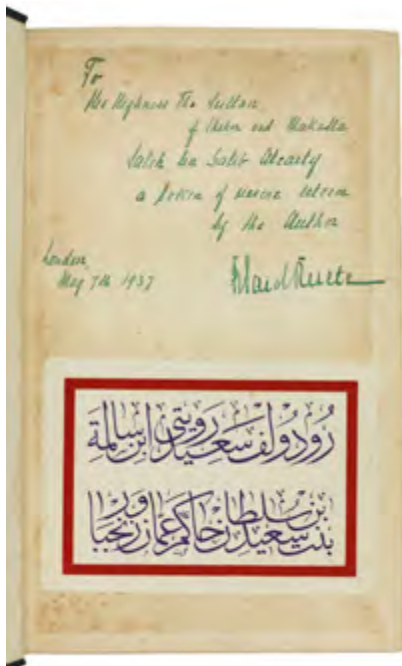 To
His Highness The Sultan
of Shehr and Makalla
Salih bin Galib Alcaity
a token of sincere esteem
by the Author
London,
May 7th 1937
Said Ruete
رودولف سعيد رويتى ابن سالمة
بنت سعيد بن سلطان حاكم عمان وزنجبار